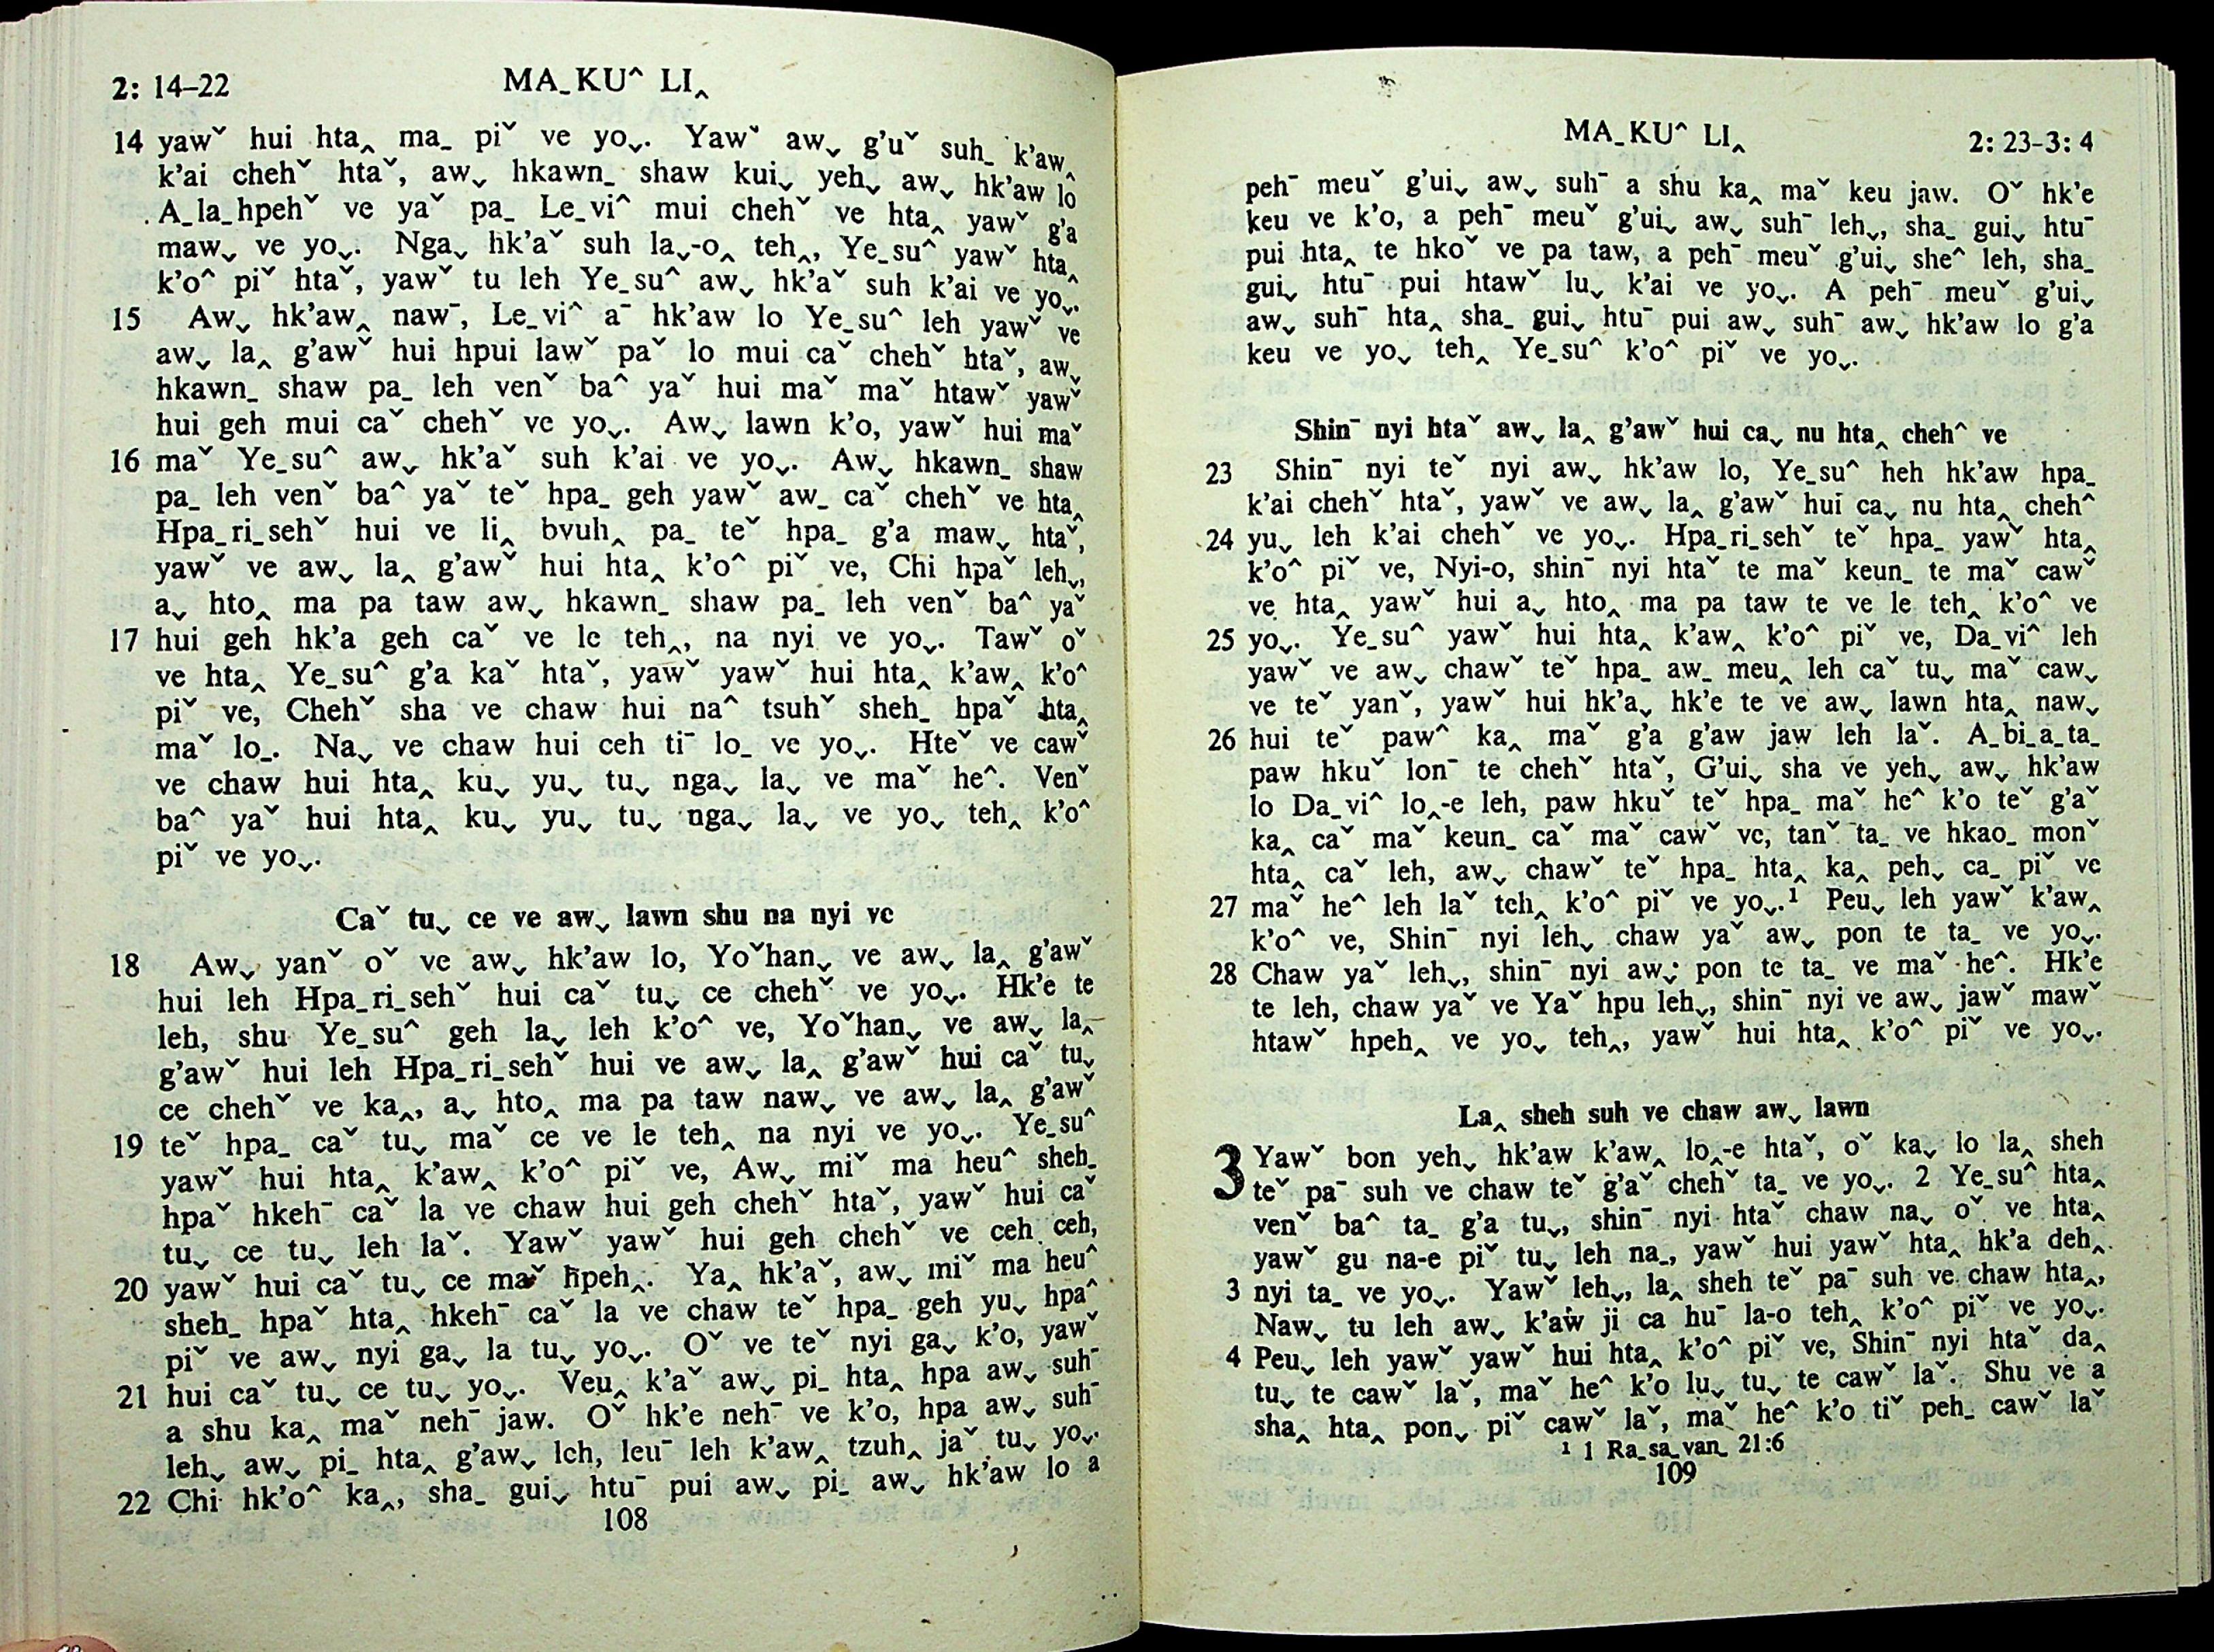 2: 14–22
MAˍKUˆ LI‸
14 yawˇ hui hta‸ maˍ piˇ ve yoˬ. Yawˇ awˬ g’uˇ suhˍ k’aw‸
k’ai chehˇ htaˇ, awˬ hkawnˍ shaw kuiˬ yehˬ awˬ hk’aw lo
Aˍlaˍhpehˇ ve yaˇ paˍ Leˍviˆ mui chehˇ ve hta‸ yawˇ g’a
mawˬ ve yoˬ. Ngaˬ hk’aˇ suh laˬ-o‸ teh‸, Yeˍsuˆ yawˇ hta‸
k’oˆ piˇ htaˇ, yawˇ tu leh Yeˍsuˆ awˬ hk’aˇ suh k’ai ve yoˬ.
15 Awˬ hk’aw‸ nawˉ, Leˍviˆ aˉ hk’aw lo Yeˍsuˆ leh yawˇ ve
awˬ la‸ g’awˇ hui hpui lawˇ paˇ lo mui caˇ chehˇ htaˇ, awˬ
hkawnˍ shaw paˍ leh venˇ baˆ yaˇ hui maˇ maˇ htawˇ yawˇ
hui geh mui caˇ chehˇ ve yoˬ. Awˬ lawn k’o, yawˇ hui maˇ
16 maˇ Yeˍsuˆ awˬ hk’aˇ suh k’ai ve yoˬ. Awˬ hkawnˍ shaw
paˍ leh venˇ baˆ yaˇ teˇ hpaˍ geh yawˇ awˍ caˇ chehˇ ve hta‸
Hpaˍriˍsehˇ hui ve li‸ bvuh‸ paˍ teˇ hpaˍ g’a mawˬ htaˇ,
yawˇ ve awˬ la‸ g’awˇ hui hta‸ k’oˆ piˇ ve, Chi hpaˇ lehˬ,
aˬ hto‸ ma pa taw awˬ hkawnˍ shaw paˍ leh venˇ baˆ yaˇ
17 hui geh hk’a geh caˇ ve le teh‸, na nyi ve yoˬ. Tawˇ oˇ
ve hta‸ Yeˍsuˆ g’a kaˇ htaˇ, yawˇ yawˇ hui hta‸ k’aw‸ k’oˆ
piˇ ve, Chehˇ sha ve chaw hui naˆ tsuhˇ shehˍ hpaˇ hta‸
maˇ loˍ. Naˬ ve chaw hui ceh tiˉ loˍ ve yoˬ. Hteˇ ve cawˇ
ve chaw hui hta‸ kuˬ yuˬ tuˬ ngaˬ laˬ ve maˇ heˆ. Venˇ
baˆ yaˇ hui hta‸ kuˬ yuˬ tuˬ ngaˬ laˬ ve yoˬ teh‸ k’oˆ
piˇ ve yoˬ.
Caˇ tuˬ ce ve awˬ lawn shu na nyi ve
18 Awˬ yanˇ oˇ ve awˬ hk’aw lo, Yoˇhanˬ ve awˬ la‸ g’awˇ
hui leh Hpaˍriˍsehˇ hui caˇ tuˬ ce chehˇ ve yoˬ. Hk’e te
leh, shu Yeˍsuˆ geh laˬ leh k’oˆ ve, Yoˇhanˬ ve awˬ la‸
g’awˇ hui leh Hpaˍriˍsehˇ hui ve awˬ la‸ g’awˇ hui caˇ tuˬ
ce chehˇ ve ka‸, aˬ hto‸ ma pa taw nawˬ ve awˬ la‸ g’awˇ
19 teˇ hpaˍ caˇ tuˬ maˇ ce ve le teh‸ na nyi ve yoˬ. Yeˍsuˆ
yawˇ hui hta‸ k’aw‸ k’oˆ piˇ ve, Awˬ miˇ ma heuˆ shehˍ
hpaˇ hkehˉ caˇ la ve chaw hui geh chehˇ htaˇ, yawˇ hui caˇ
tuˬ ce tuˬ leh laˇ. Yawˇ yawˇ hui geh chehˇ ve ceh ceh,
20 yawˇ hui caˇ tuˬ ce maˇ hpeh‸. Ya‸ hk’aˇ, awˬ miˇ ma heuˆ
shehˍ hpaˇ hta‸ hkehˉ caˇ la ve chaw teˇ hpaˍ geh yuˬ hpaˆ
piˇ ve awˬ nyi gaˬ la tuˬ yoˬ. Oˇ ve teˇ nyi gaˬ k’o, yawˇ
21 hui caˇ tuˬ ce tuˬ yoˬ. Veu‸ k’aˇ awˬ piˍ hta‸ hpa awˬ suhˉ
a shu ka‸ maˇ nehˉ jaw. Oˇ hk’e nehˉ ve k’o, hpa awˬ suhˉ
lehˬ awˬ piˍ hta‸ g’awˬ leh, leuˉ leh k’aw‸ tzuh‸ jaˇ tuˬ yoˬ.
22 Chi hk’oˆ ka‸, shaˍ guiˬ htuˉ pui awˬ piˍ awˬ hk’aw lo a
108
MAˍKUˆ LI‸
2: 23-3: 4
pehˉ meuˇ g’uiˬ awˬ suhˉ a shu ka‸ maˇ keu jaw. Oˇ hk’e
keu ve k’o, a pehˉ meuˇ g’uiˬ awˬ suhˉ lehˬ, shaˍ guiˬ htuˉ
pui hta‸ te hkoˇ ve pa taw, a pehˉ meuˇ g’uiˬ sheˆ leh, shaˍ
guiˬ htuˉ pui htawˇ luˬ k’ai ve yoˬ. A pehˉ meuˇ g’uiˬ
awˬ suhˉ hta‸ shaˍ guiˬ htuˉ pui awˬ suhˉ awˬ hk’aw lo g’a
keu ve yoˬ teh‸ Yeˍsuˆ k’oˆ piˇ ve yoˬ.
Shinˉ nyi htaˇ awˬ la‸ g’awˇ hui caˬ nu hta‸ chehˆ ve
23 Shinˉ nyi teˇ nyi awˬ hk’aw lo, Yeˍsuˆ heh hk’aw hpaˍ
k’ai chehˇ htaˇ, yawˇ ve awˬ la‸ g’awˇ hui caˬ nu hta‸ chehˆ
24 yuˬ leh k’ai chehˇ ve yoˬ. Hpaˍriˍsehˇ teˇ hpaˍ yawˇ hta‸
k’oˆ piˇ ve, Nyi-o, shinˉ nyi htaˇ te maˇ keunˍ te maˇ cawˇ
ve hta‸ yawˇ hui aˬ hto‸ ma pa taw te ve le teh‸ k’oˆ ve
25 yoˬ. Yeˍsuˆ yawˇ hui hta‸ k’aw‸ k’oˆ piˇ ve, Daˍviˆ leh
yawˇ ve awˬ chawˇ teˇ hpaˍ awˍ meu‸ leh caˇ tuˬ maˇ cawˬ
ve teˇ yanˇ, yawˇ hui hk’aˬ hk’e te ve awˬ lawn hta‸ nawˬ
26 hui teˇ pawˆ ka‸ maˇ g’a g’aw jaw leh laˇ. Aˍbiˍaˍtaˍ
paw hkuˇ lonˉ te chehˇ htaˇ, G’uiˬ sha ve yehˬ awˬ hk’aw
lo Daˍviˆ lo‸-e leh, paw hkuˇ teˇ hpaˍ maˇ heˆ k’o teˇ g’aˇ
ka‸ caˇ maˇ keunˍ caˇ maˇ cawˇ ve, tanˇ taˍ ve hkaoˍ monˇ
hta‸ caˇ leh, awˬ chawˇ teˇ hpaˍ hta‸ ka‸ pehˬ caˍ piˇ ve
27 maˇ heˆ leh laˇ teh‸ k’oˆ piˇ ve yoˬ.¹ Peuˬ leh yawˇ k’aw‸
k’oˆ ve, Shinˉ nyi lehˬ chaw yaˇ awˬ pon te taˍ ve yoˬ.
28 Chaw yaˇ lehˬ, shinˉ nyi awˬ pon te taˍ ve maˇ heˆ. Hk’e
te leh, chaw yaˇ ve Yaˇ hpu lehˬ, shinˉ nyi ve awˬ jawˇ mawˇ
htawˇ hpeh‸ ve yoˬ teh‸, yawˇ hui hta‸ k’oˆ piˇ ve yoˬ.
La‸ sheh suh ve chaw awˬ lawn
3 Yawˇ bon yehˬ hk’aw k’aw‸ lo‸-e htaˇ, oˇ kaˬ lo la‸ sheh
teˇ paˉ suh ve chaw teˇ g’aˇ chehˇ taˍ ve yoˬ. 2 Yeˍsuˆ hta‸
venˇ baˆ taˍ g’a tuˬ, shinˉ nyi htaˇ chaw naˬ oˇ ve hta‸
yawˇ gu na-e piˇ tuˬ leh naˍ, yawˇ hui yawˇ hta‸ hk’a deh‸
3 nyi taˍ ve yoˬ. Yawˇ lehˬ, la‸ sheh teˇ paˉ suh ve chaw hta‸,
Nawˬ tu leh awˬ k’aw ji ca huˉ la-o teh‸ k’oˆ piˇ ve yoˬ.
4 Peuˬ leh yawˇ yawˇ hui hta‸ k’oˆ piˇ ve, Shinˉ nyi htaˇ da‸
tuˬ te cawˇ laˇ, maˇ heˆ k’o luˬ tuˬ te cawˇ laˇ. Shu ve a
sha‸ hta‸ ponˬ piˇ cawˇ laˇ, maˇ heˆ k’o tiˇ pehˍ cawˇ laˇ
¹ 1 Raˍsaˍvanˍ 21:6
109